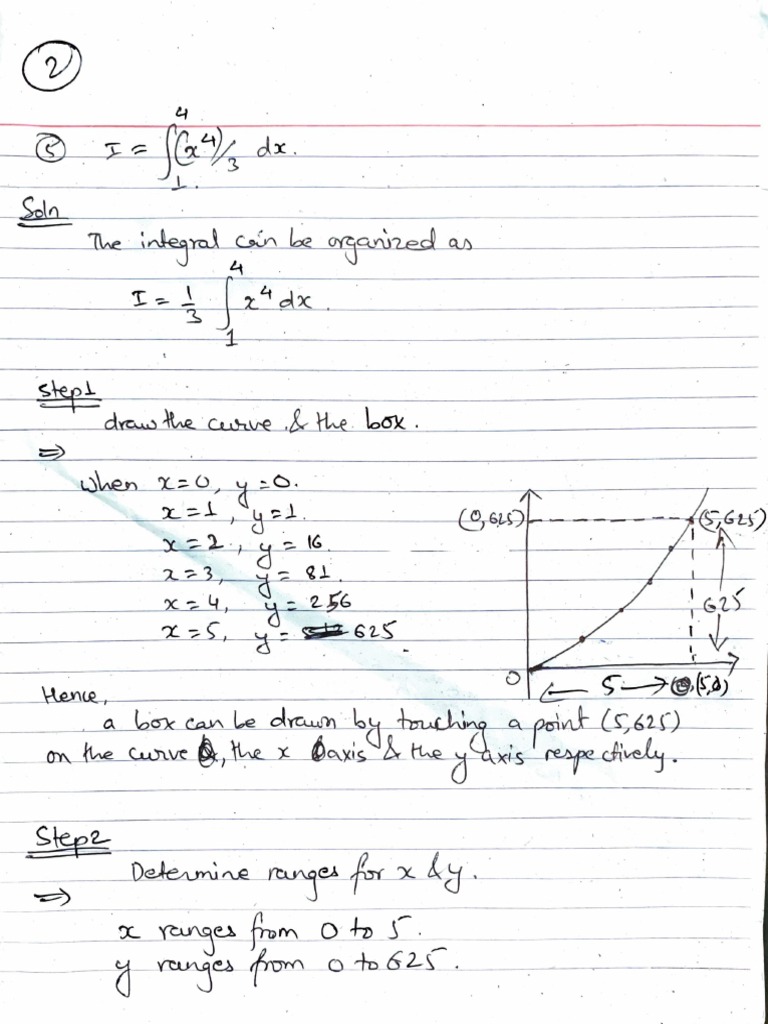 2
5 I = ∫₁⁴ (x⁴)/3 dx.
Soln
The integral can be organized as
I = 1/3 ∫₁⁴ x⁴ dx.
Step1
draw the curve & the box.
⇒
when x=0, y=0.
x=1, y=1.
x=2, y=16
x=3, y=81.
x=4, y=256
x=5, y= 625.
(0,625) (5,625)
625
0 ← 5 → (5,0)
Hence,
a box can be drawn by touching a point (5,625)
on the curve, the x axis & the y axis respectively.
Step2
Determine ranges for x & y.
⇒
x ranges from 0 to 5.
y ranges from 0 to 625.